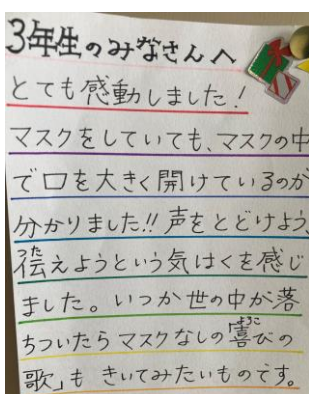 3年生のみなさんへ
とても感動しました!
マスクをしていても、マスクの中
で口を大きく開けているのが
分かりました!!声をとどけよう、
つた
伝えようという気はくを感じ
ました。いつか世の中が落
ちついたらマスクなしの
よろこ
喜びの
歌」も きいてみたいものです。